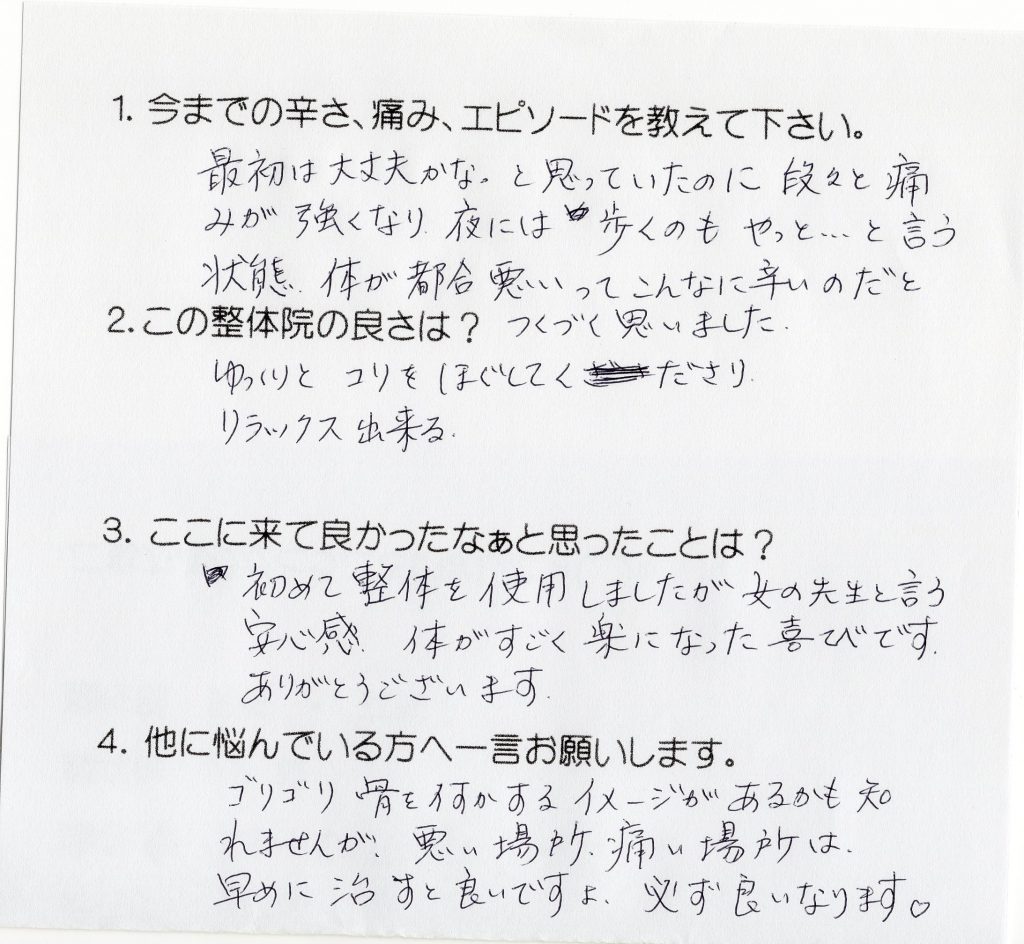 1. 今までの辛さ、痛み、エピソードを教えて下さい。
最初は大丈夫かな。と思っていたのに 段々と痛
みが強くなり、夜には 歩くのも やっと…と言う
状態、体が都合悪いってこんなに辛いのだと
2.この整体院の良さは？ つくづく思いました。
ゆっくりと コリを ほぐしてく ださり、
リラックス出来る。
3. ここに来て良かったなぁと思ったことは？
初めて整体を使用しましたが 女の先生と言う
安心感、体がすごく楽になった喜びです。
ありがとうございます。
4. 他に悩んでいる方へ一言お願いします。
ゴリゴリ骨を何かするイメージがあるかも知
れませんが、悪い場所、痛い場所は、
早めに治すと良いですよ、必ず良いなります♡